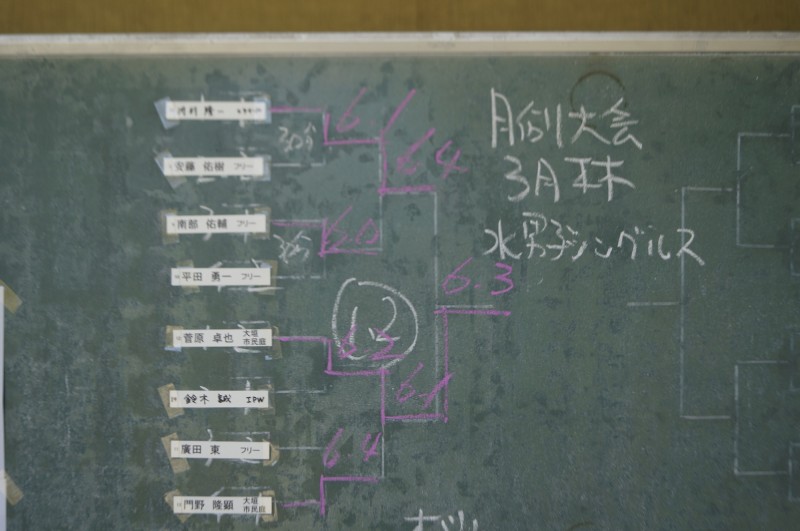 月例大会
3月末
水男子シングルス
河村 隆一
安藤 佑樹 フリー
南部 佑輔 フリー
平田 勇一 フリー
菅原 卓也 大垣市民庭
鈴木 誠 IPW
廣田 東 フリー
門野 隆顕 大垣市民庭
6.1
6.4
6.0
6.3
12
6.2
6.1
6.4